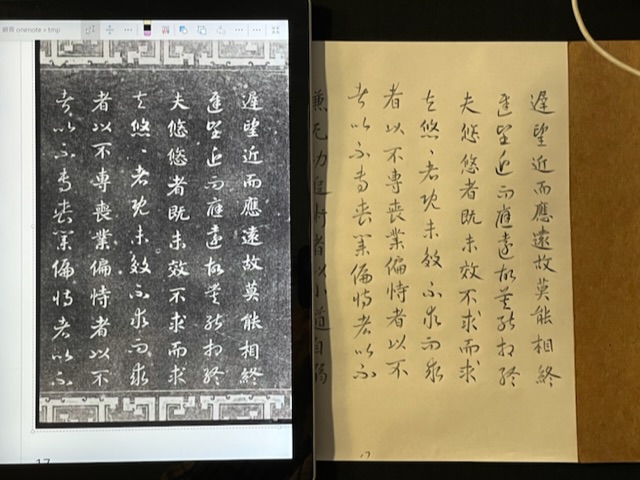 遲望近而應遠故莫能相終
遲望近而應遠故莫能相終
夫悠悠者既未效不求而求
夫悠、者既未效不求而求
者以不專喪業偏恃者以不
者以不專喪業偏恃者以不
遲望近而應遠故莫能相終
遲望近而應遠故莫能相終
夫悠悠者既未效不求而求
夫悠、者既未效不求而求
者以不專喪業偏恃者以不
者以不專喪業偏恃者以不